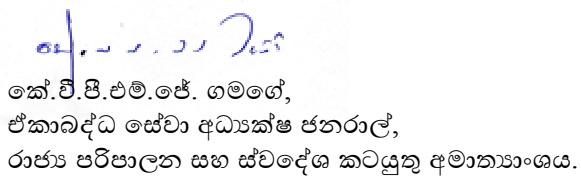 කේ.වී.පී.එම්.ජේ. ගමගේ,
ඒකාබද්ධ සේවා අධ්‍යක්ෂ ජනරාල්,
රාජ්‍ය පරිපාලන සහ ස්වදේශ කටයුතු අමාත්‍යාංශය.